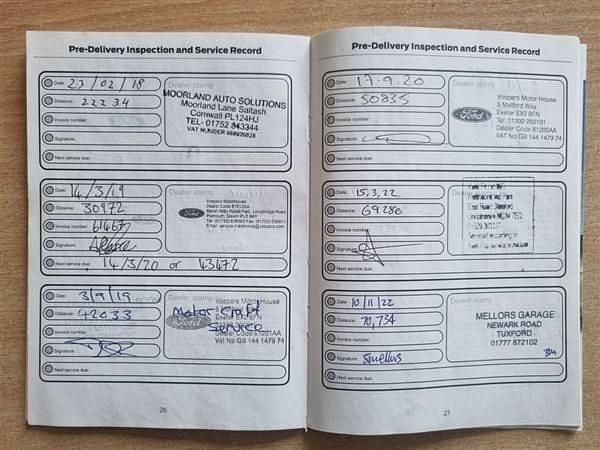 Pre-Delivery Inspection and Service Record
Date: 23/02/18
Dealer stamp
Distance: 22234
Invoice number:
Signature:
Next service due:
MOORLAND AUTO SOLUTIONS
Moorland Lane Saltash
Cornwall PL124HJ
TEL- 01752 843344
VAT NUMBER
Date: 14/3/19
Dealer stamp
Distance: 30972
Invoice number:
Signature:
Next service due: 14/3/20 or 43472
Ford
Vospers Motorhouse
Dealer Code
Marsh Mills Retail Park, Longbridge Road
Plymouth, Devon PL6 8AY
Date: 3/9/19
Dealer stamp
Distance: 42033
Invoice number:
Signature:
Next service due:
Ford
Vospers Motor House
Motor Craft
Service
Exeter EX2 8FN
Dealer Code 81201AA
Vat No GB 144 1479 74
26
Pre-Delivery Inspection and Service Record
Date: 17.9.20
Dealer stamp
Distance: 50835
Invoice number:
Signature:
Next service due:
Ford
Vospers Motor House
5 Matford Way
Exeter EX2 8FN
Tel: 01392 250101
Dealer Code 81200AA
Vat No GB 144 1479 74
Date: 15.3.22
Dealer stamp
Distance: 69280
Invoice number:
Signature:
Next service due:
Date: 10/11/22
Dealer stamp
Distance: 70,734
Invoice number:
Signature: Smellors
Next service due:
MELLORS GARAGE
NEWARK ROAD
TUXFORD
01777 872102
27